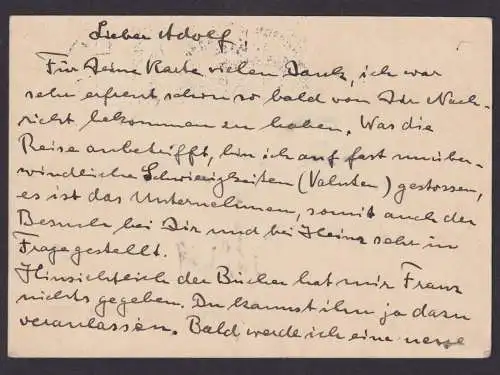 Lieber Adolf,
Für Deine Karte vielen Dank, ich war
sehr erfreut schon so bald von Dir Nach-
richt bekommen zu haben. Was die
Reise anbetrifft, bin ich auf fast unüber-
windliche Schwierigkeiten (Valuten) gestossen,
es ist das Unternehmen, somit auch der
Besuch bei Dir und bei Heinz sehr in
Frage gestellt.
Hinsichtlich der Bücher hat mir Franz
nichts gegeben. Du kannst ihn ja dazu
veranlassen. Bald werde ich eine neue